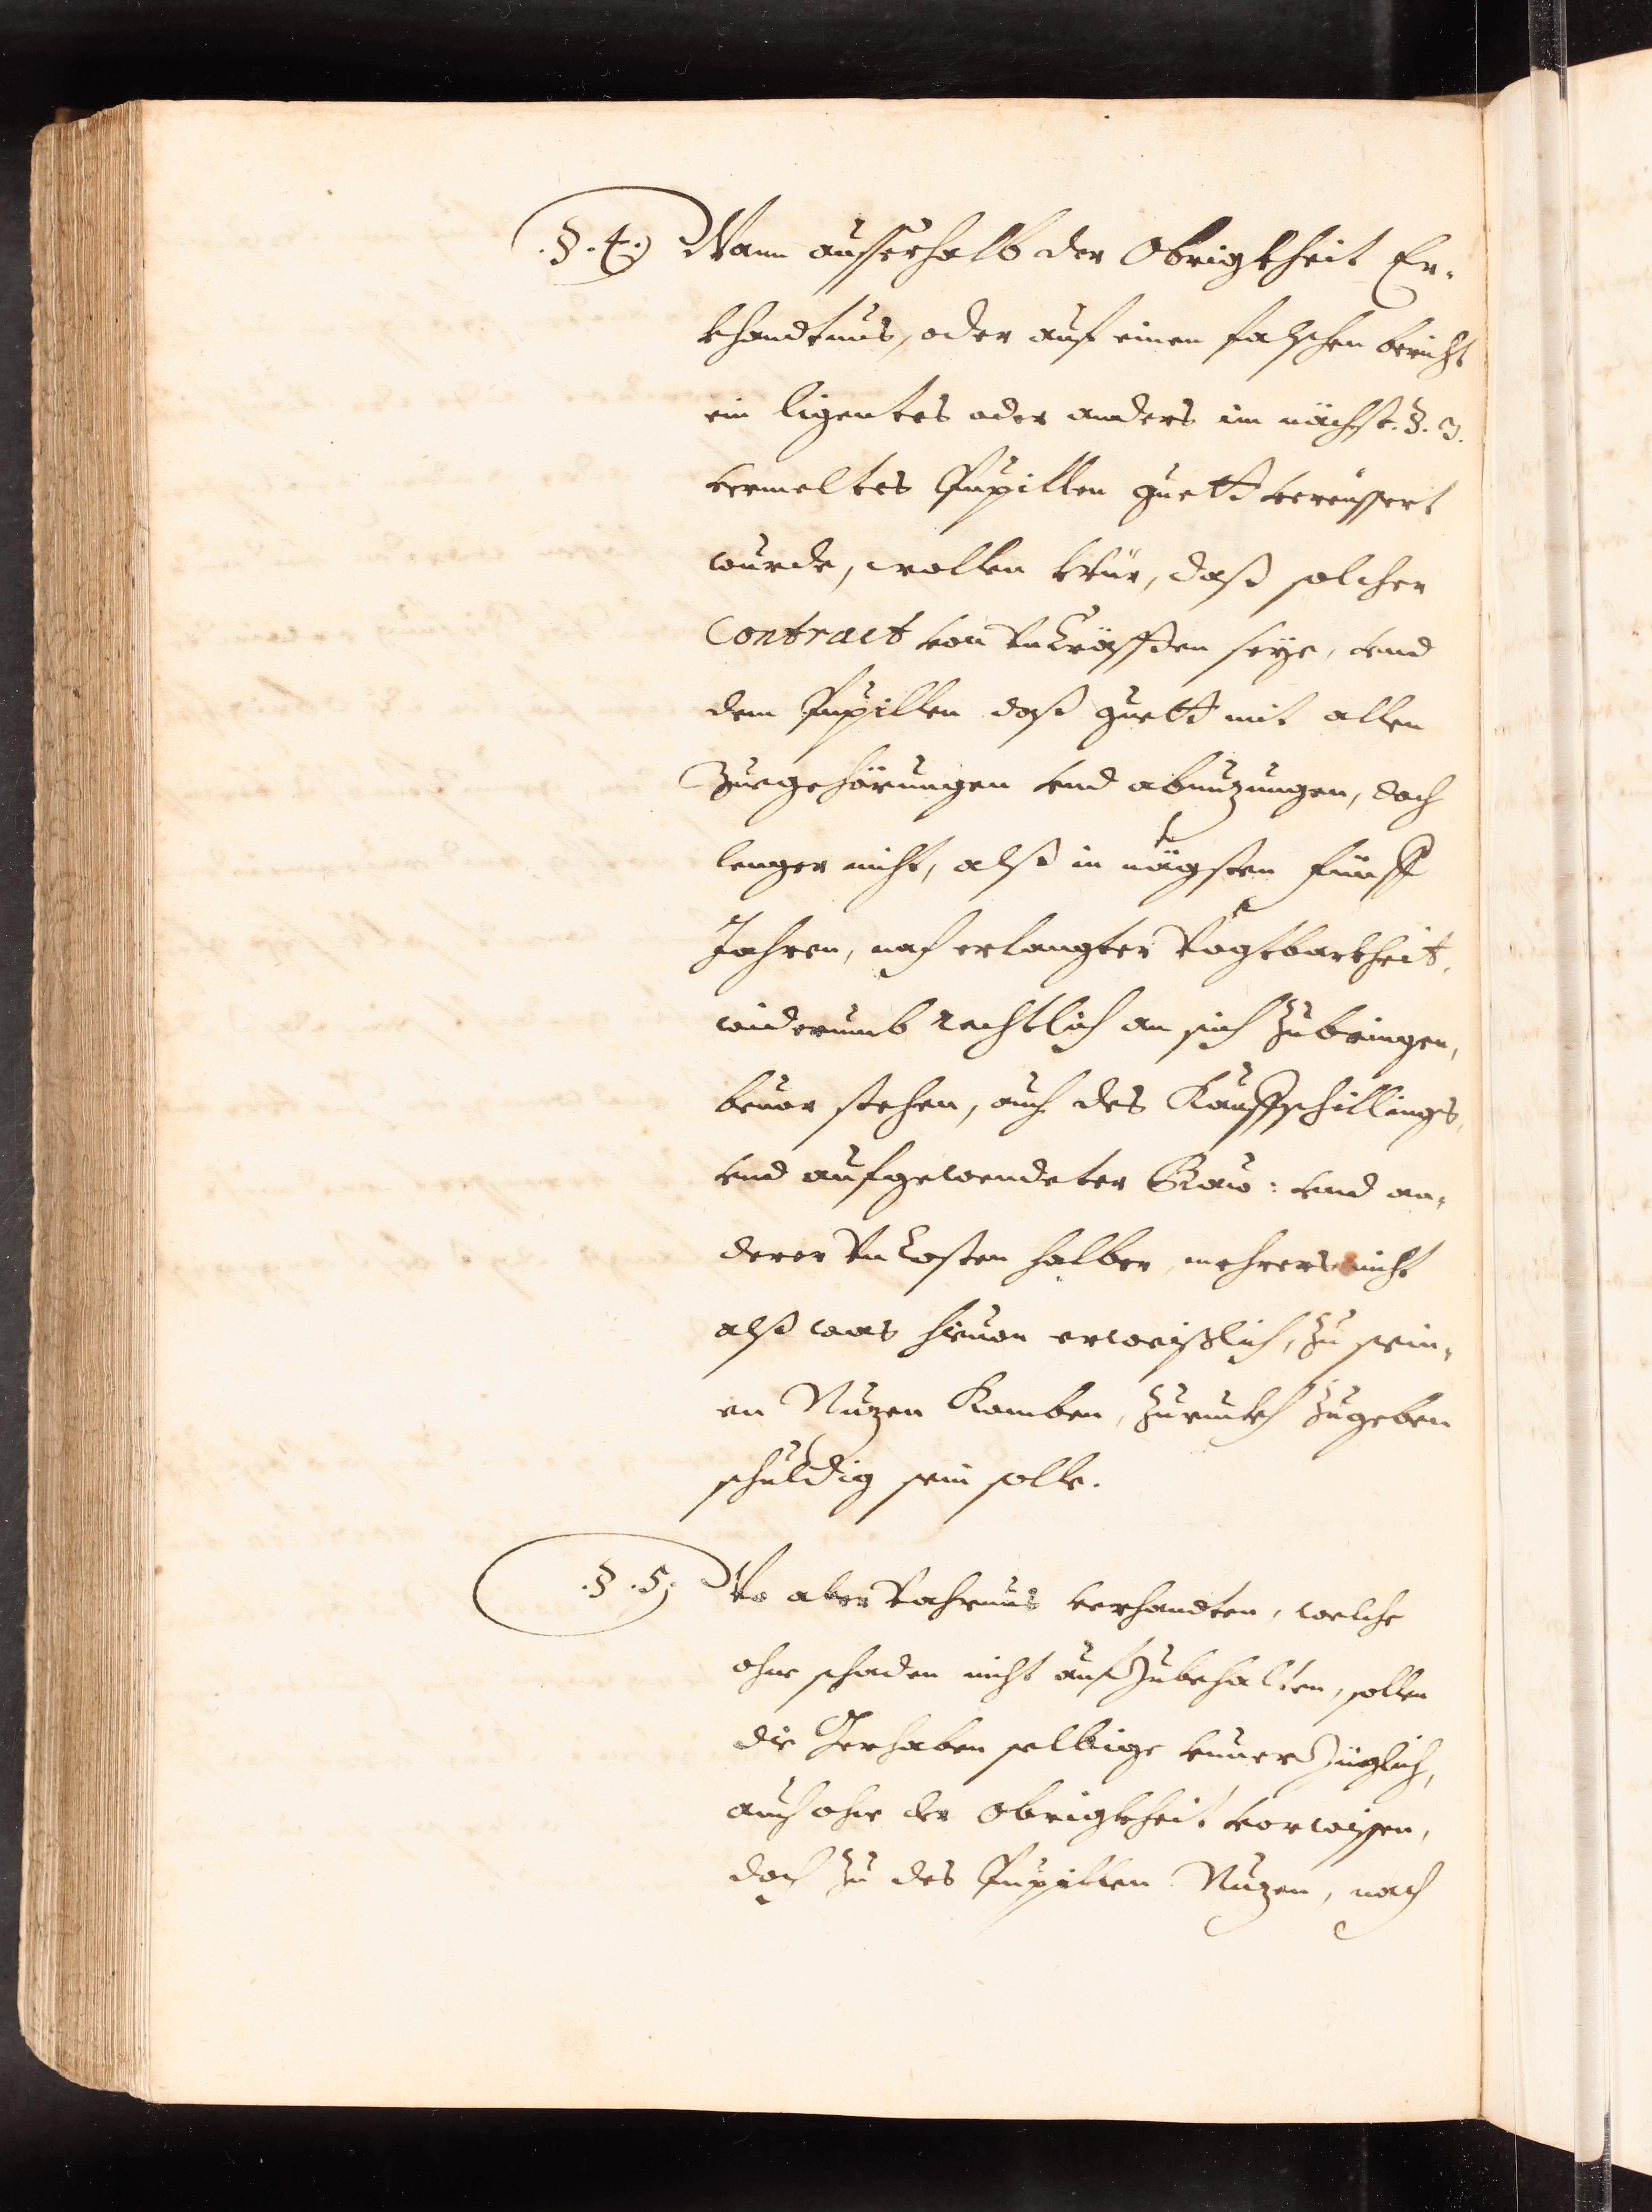 .§.4. Wann ausserhalb der Obrigkheit Er-
khandtnus, oder auf einen falschen bericht
ein ligentes oder anders im nächst. §. 3.
vermeltes Pupillen guett vereussert
wurde, wollen wür, daß solcher
Contract von Unkräfften seye, vnd
dem Pupillen daß guett mit allen
Zuegehörungen vnd abnuzungen, doch
lenger nicht, alß in nägsten fünff
Jahren, nach erlangter Vogtbarkheit,
widerumb rechtlich an sich zubringen,
beuor stehen, auch des Kauffschillings,
vnd aufgewendeter Baw: vnd an-
derer Vnkosten halber, mehrers nicht
alß was hieuon erweißlich, zu sein-
en Nuzen komben, zuruckh zugeben
schuldig sein solle.
.§.5. Wo aber Vahrnus verhandten, welche
ohne schaden nicht aufzubehalten, sollen
die Gerhaben selbige vnuerzüglich,
auch ohne der Obrigkheit vorwissen,
doch zu des Pupillen Nuzen, nach